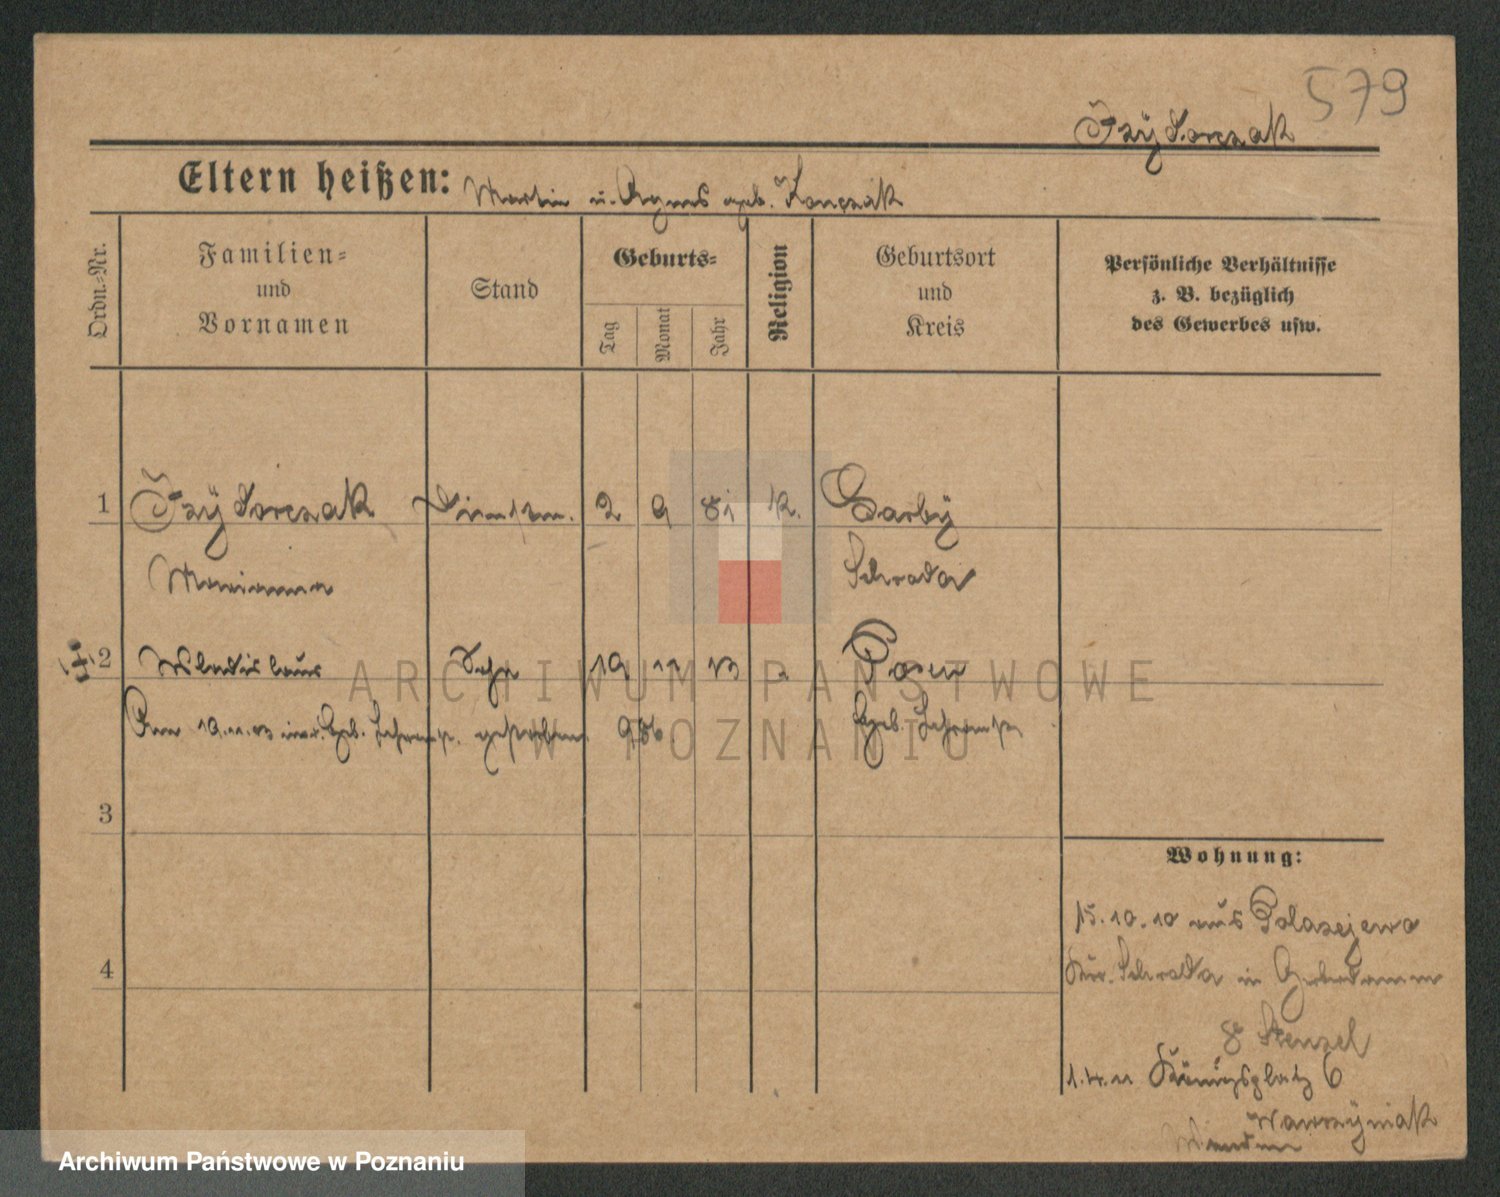 579
Izydorczak
Eltern heißen: Martin u. Agnes geb. Konczak
Ordn.-Nr.
Familien-
und
Vornamen
Stand
Geburts-
Tag
Monat
Jahr
Religion
Geburtsort
und
Kreis
Persönliche Verhältnisse
z. B. bezüglich
des Gewerbes usw.
1 Izydorczak 2 9 81 k. Garby
Marianna Schroda
2 Wladislaus Sohn 19 11 13 Posen
Am 19.11.13 gestorben 986
Geb.
3
4
Wohnung:
15.10.10 aus Polazejewo
Kr. Schroda in Gerberdamm
8 Stenzel
1.4.11 Königsplatz 6
Wawrzyniak
ARCHIWUM PAŃSTWOWE
W POZNANIU
Archiwum Państwowe w Poznaniu